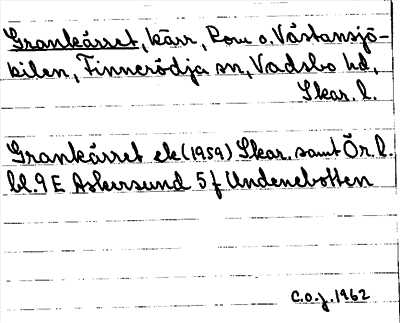 Grankärret, kärr, Rom o. Västansjö-
kilen, Finnerödja sn, Vadsbo hd,
Skar. l.
Grankärret ek (1959) Skar. samt Ör. l.
bl. 9 E Askersund 5 f Undenebotten
C.O.J. 1962